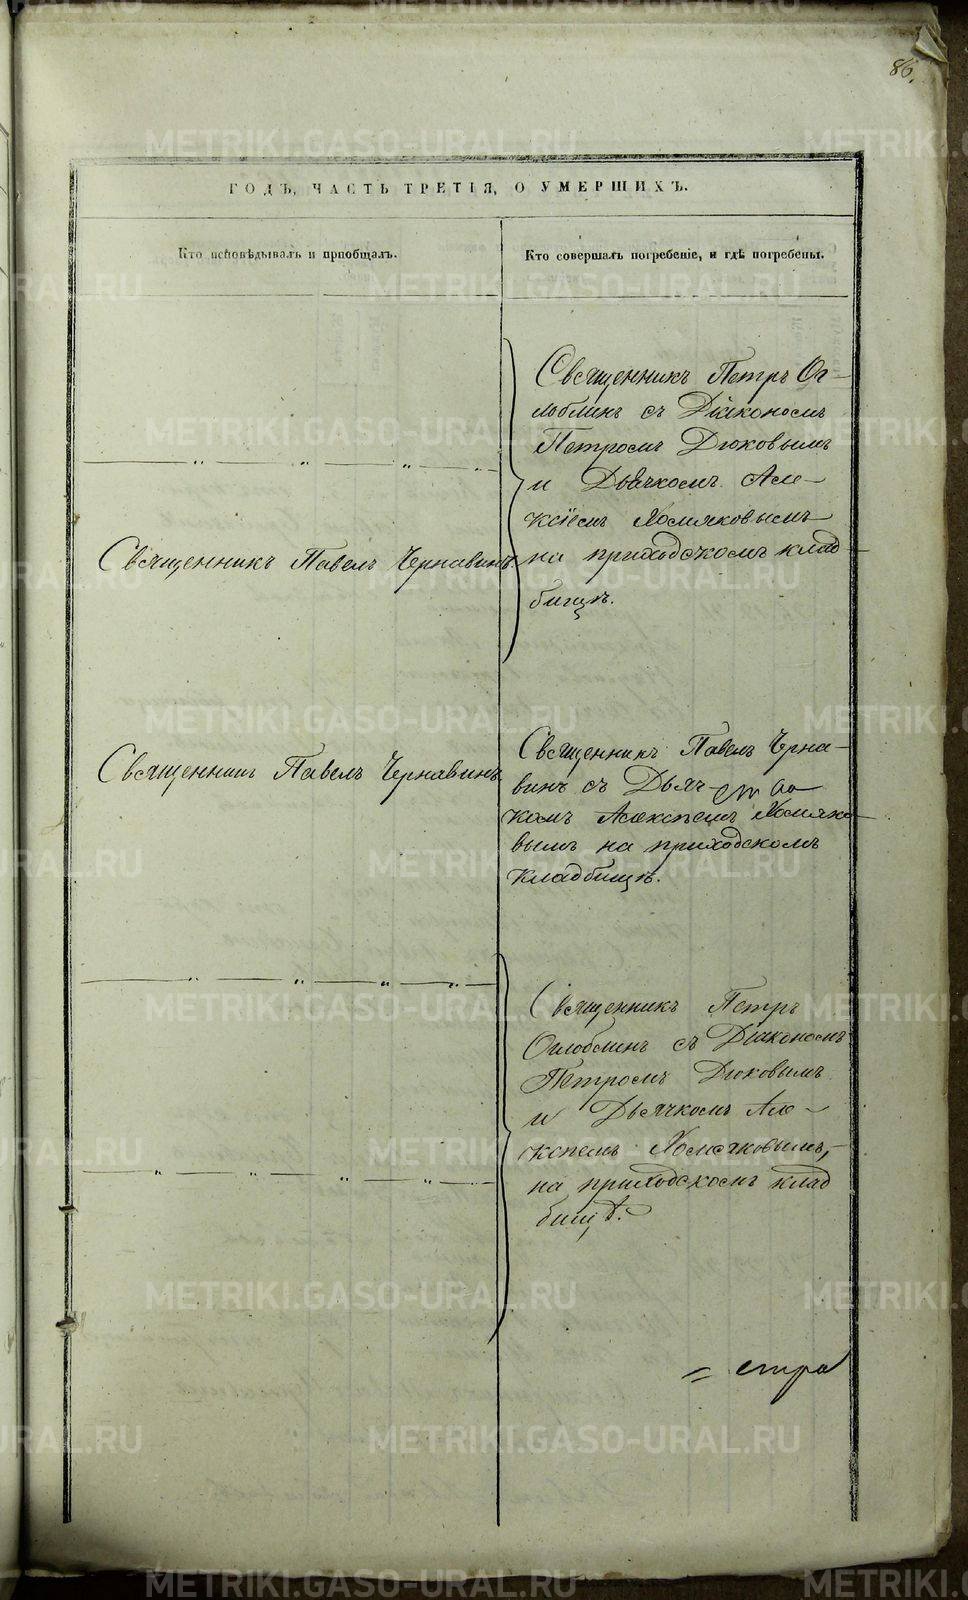 86.
ГОДЪ, ЧАСТЬ ТРЕТІЯ, О УМЕРШИХЪ.
Кто исповѣдывалъ и пріобщалъ.
Кто совершалъ погребеніе, и гдѣ погребены.
Священникъ Петръ Ог-
лоблинъ съ Діакономъ
Петромъ Дюковымъ
и Дьячкомъ Але-
ксіемъ Хомяковымъ
на приходскомъ клад-
бищѣ.
Священникъ Павелъ Чернавинъ.
Священникъ Павелъ Чернавинъ
Священникъ Павелъ Черна-
винъ съ Дьяч-
комъ Алексѣемъ Хомяко-
вымъ на приходскомъ
кладбищѣ.
Священникъ Петръ
Оглоблинъ съ Діакономъ
Петромъ Дюковымъ
и Дьячкомъ Але-
ксѣемъ Хомяковымъ,
на приходскомъ клад
бищѣ.
стра
METRIKI.GASO-URAL.RU